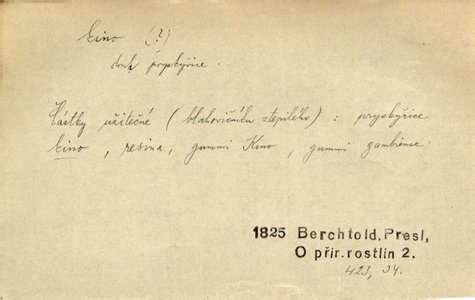 kino (?)
druh pryskyřice.
Částky užitečné (blahovičníku ztepilého): pryskyřice
kino, resina, gummi Kino, gummi gambiense.
1825 Berchtold, Presl,
O přir. rostlin 2.
423, 34.